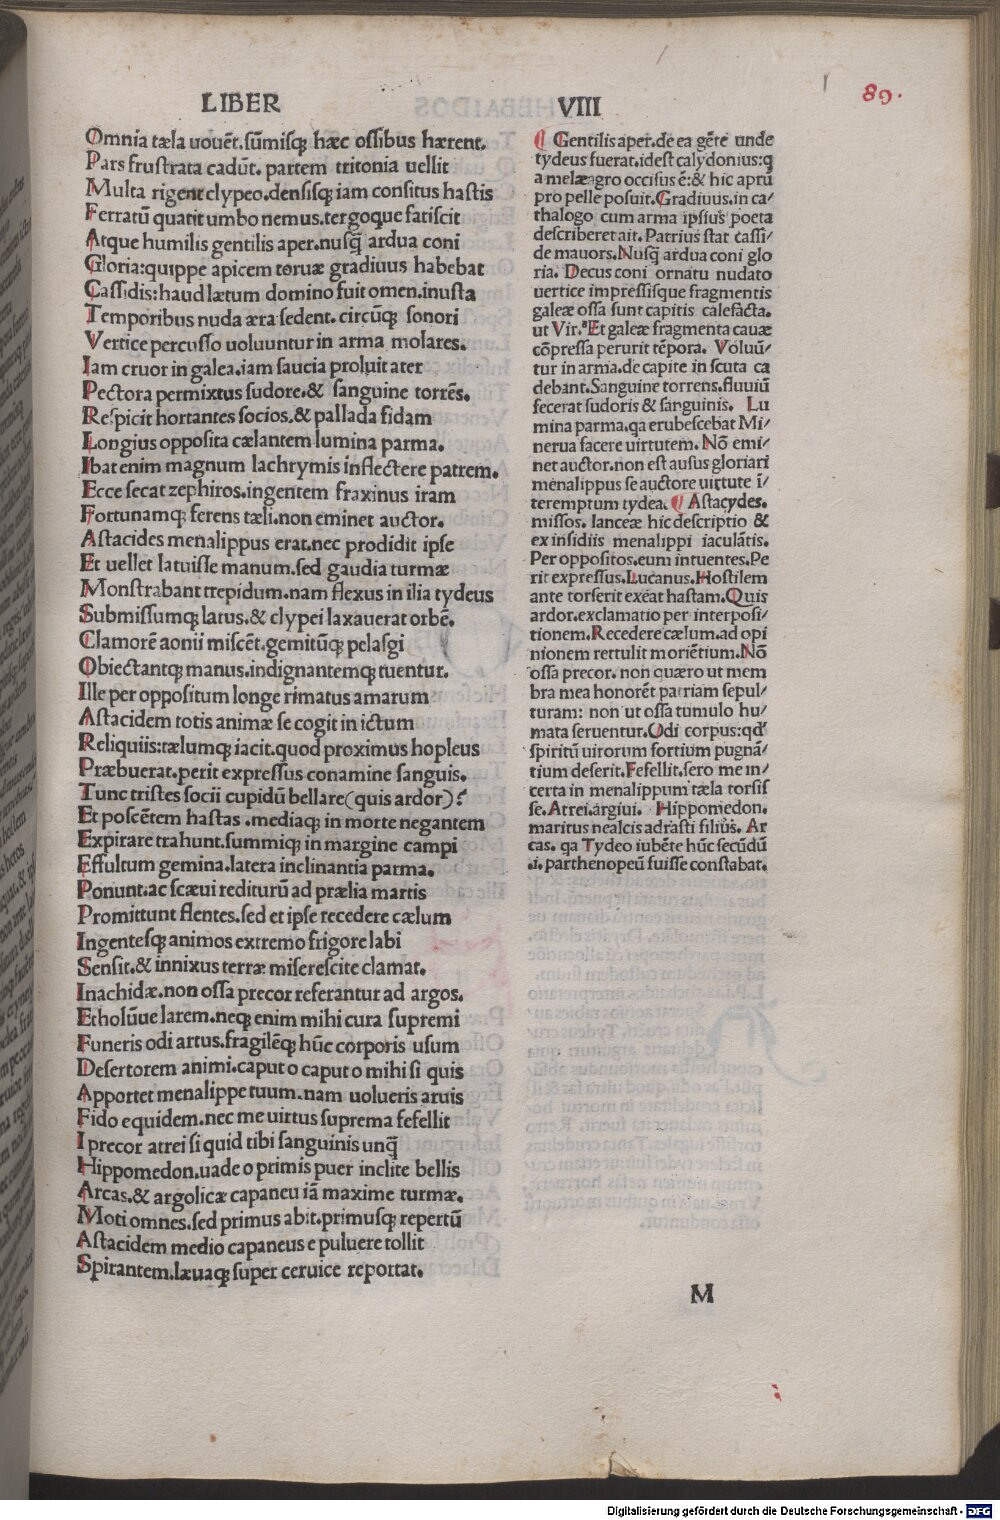 LIBER
VIII
89.
Omnia tæla uouēt.sūmisq; hæc ossibus hærent.
Pars frustrata cadūt. partem tritonia uellit
Multa rigent clypeo.densisq; iam consitus hastis
Ferratū quatit umbo nemus.tergoque fatiscit
Atque humilis gentilis aper.nusq̄ ardua coni
Gloria:quippe apicem toruæ gradiuus habebat
Cassidis:haud lætum domino fuit omen.inusta
Temporibus nuda æra sedent.circūq; sonori
Vertice percusso uoluuntur in arma molares.
Iam cruor in galea.iam saucia proluit ater
Pectora permixtus sudore.& sanguine torrēs.
Respicit hortantes socios.& pallada fidam
Longius opposita cælantem lumina parma.
Ibat enim magnum lachrymis inflectere patrem.
Ecce secat zephiros.ingentem fraxinus iram
Fortunamq; ferens tæli.non eminet auctor.
Astacides menalippus erat.nec prodidit ipse
Et uellet latuisse manum.sed gaudia turmæ
Monstrabant trepidum.nam flexus in ilia tydeus
Submissumq; latus.& clypei laxauerat orbē.
Clamorē aonii miscēt.gemitūq; pelasgi
Obiectantq; manus.indignantemq; tuentur.
Ille per oppositum longe rimatus amarum
Astacidem totis animæ se cogit in ictum
Reliquiis:tælumq; iacit.quod proximus hopleus
Præbuerat.perit expressus conamine sanguis.
Tunc tristes socii cupidū bellare(quis ardor)?
Et poscētem hastas .mediaq; in morte negantem
Expirare trahunt.summiq; in margine campi
Effultum gemina.latera inclinantia parma.
Ponunt.ac scæui rediturū ad prælia martis
Promittunt flentes.sed et ipse recedere cælum
Ingentesq; animos extremo frigore labi
Sensit.& innixus terræ miserescite clamat.
Inachidæ.non ossa precor referantur ad argos.
Etholūue larem.neq; enim mihi cura supremi
Funeris odi artus.fragilēq; hūc corporis usum
Desertorem animi.caput o caput o mihi si quis
Apportet menalippe tuum.nam uolueris aruis
Fido equidem.nec me uirtus suprema fefellit
I precor atrei si quid tibi sanguinis unq̄
Hippomedon.uade o primis puer inclite bellis
Arcas.& argolicæ capaneu iā maxime turmæ.
Moti omnes.sed primus abit.primusq; repertū
Astacidem medio capaneus e puluere tollit
Spirantem.læuaq; super ceruice reportat.
¶ Gentilis aper.de ea gēte unde
tydeus fuerat.idest calydonius:q
a melæagro occisus ē:& hic aptū
pro pelle posuit.Gradiuus.in ca/
thalogo cum arma ipsius poeta
describeret ait. Patrius stat cassi/
de mauors.Nusq̄ ardua coni glo
ria. Decus coni ornatu nudato
uertice impressisque fragmentis
galeæ ossa sunt capitis calefacta.
ut Vir. Et galeæ fragmenta cauæ
cōpressa perurit tēpora. Voluū/
tur in arma.de capite in scuta ca
debant.Sanguine torrens.fluuiū
fecerat sudoris & sanguinis. Lu
mina parma.qa erubescebat Mi/
nerua facere uirtutem. Nō emi/
net auctor.non est ausus gloriari
menalippus se auctore uirtute ī/
teremptum tydea. ¶ Astacydes.
missos. lanceæ hic descriptio &
ex insidiis menalippi iaculātis.
Per oppositos.eum intuentes.Pe
rit expressus.Lucanus.Hostilem
ante torserit exeat hastam.Quis
ardor.exclamatio per interposi/
tionem.Recedere cælum.ad opi
nionem rettulit moriētium.Nō
ossa precor. non quæro ut mem
bra mea honorēt patriam sepul/
turam: non ut ossa tumulo hu/
mata seruentur.Odi corpus:qd'
spiritū uirorum fortium pugnā/
tium deserit.Fefellit.sero me in/
certa in menalippum tæla torsis
se.Atrei.argiui. Hippomedon.
maritus nealcis adrasti filius. Ar
cas. qa Tydeo iubēte hūc secūdū
.i. parthenopeū fuisse constabat.
M
Digitalisierung gefördert durch die Deutsche Forschungsgemeinschaft - DFG